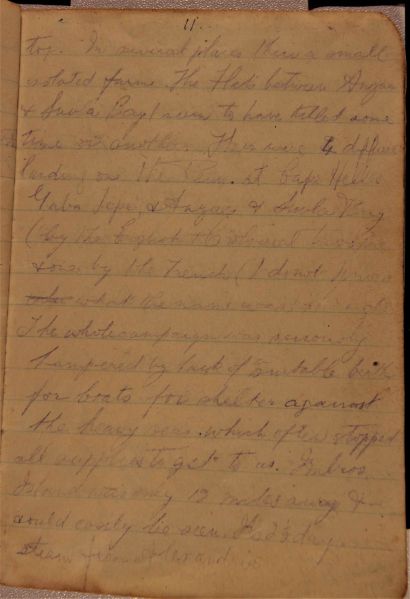 11.
top. In several places there a small
isolated farm. The flats between Anzac
& Suvla Bay seem to have tilled some
time or another. There were 4
landing on the at Cape Helles
Gaba Tepe, & Anzac & Suvla Bay
(by the English
& one by the French (I do not know
what the name was
The whole campaign was seriously
hampered by lack of suitable
for boats for shelter against
the heavy seas which often stopped
all supplies to get to us. Imbros
Island was only 12 miles away &
could easily be seen. days
steam from Alexandria